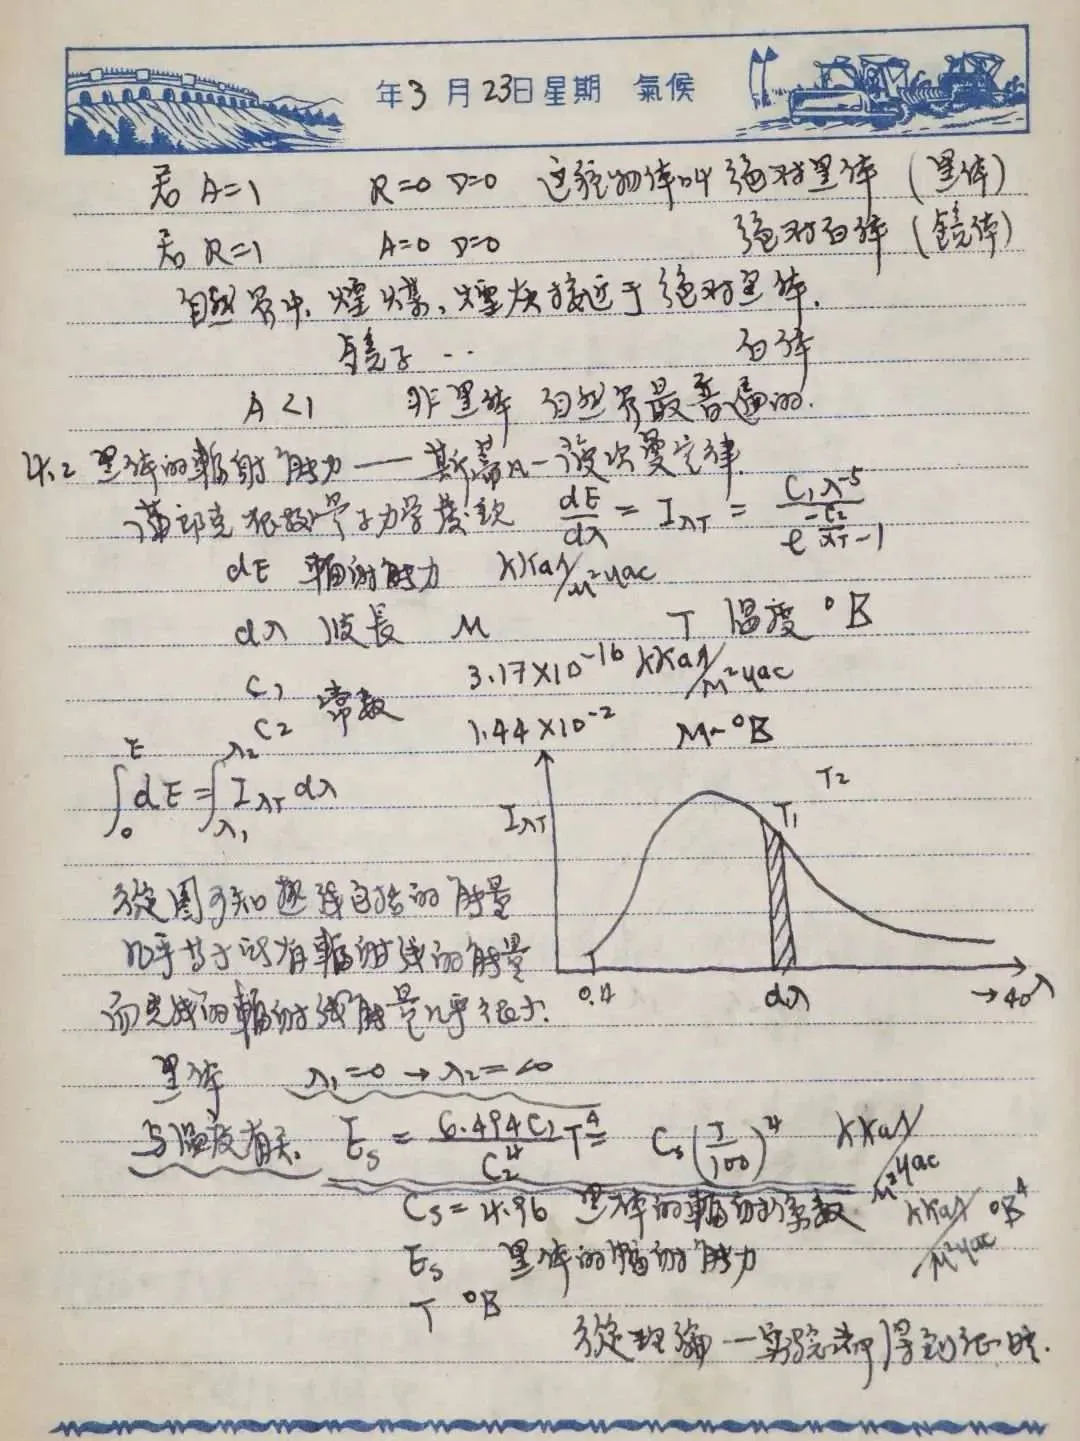 年3月23日星期 氣候
若 A=1 R=0 D=0 这种物体叫 绝对黑体 (黑体)
若 R=1 A=0 D=0 绝对白体 (镜体)
自然界中, 煙煤、煙灰接近于绝对黑体.
镜子 ‥ 白体
A<1 非黑体 自然界最普遍的.
4.2 黑体的輻射能力——斯蒂—波次曼定律.
蒲郎克根据量子力学 dE/dλ = IλT = C₁λ⁻⁵/(e^(-C₂/λT)-1)
dE 輻射能力 KKaл/м²час
dλ 波長 м T 温度 °B
C₁ 3.17×10⁻¹⁶ KKaл/м²час
C₂ 常数 1.44×10⁻² м-°B
∫₀ᴱ dE = ∫λ₁^λ₂ IλT dλ
IλT
T₂
T₁
0.4
dλ
→40 λ
從图可知热线包括的能量
几乎等于所有輻射线的能量
而光线的輻射线能量几乎很小.
黑体 λ₁=0→λ₂=∞
与温度有关. Es = 6.494C₁/C₂⁴ T⁴ = Cs(T/100)⁴ KKaл/м²час
Cs=4.96 黑体的輻射系数 KKaл/м²час °B⁴
Es 黑体的輻射能力
T °B
從理論—实验都得到证明.